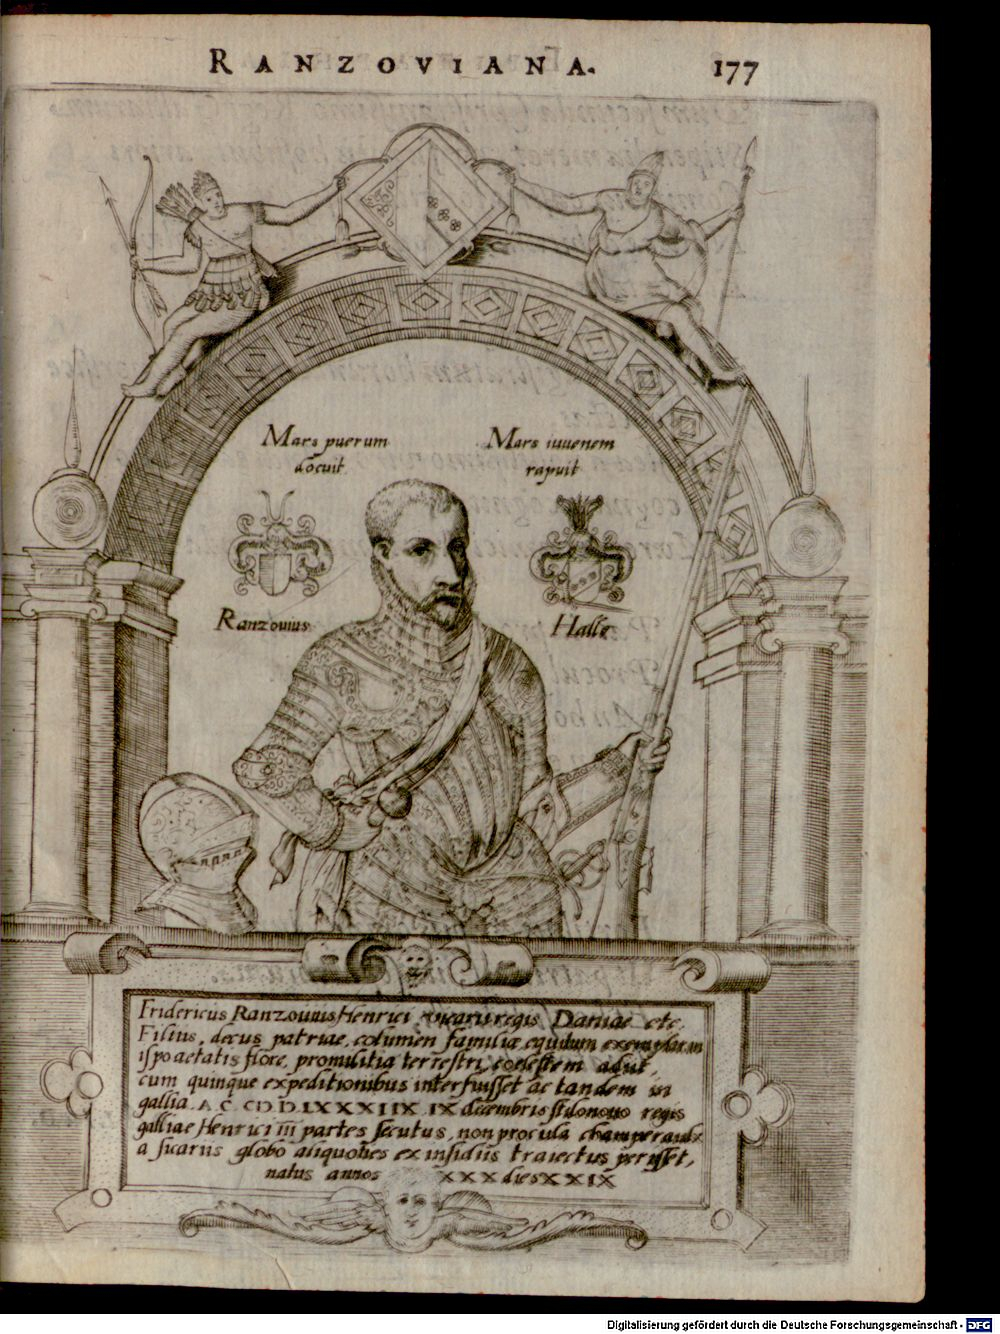 RANZOVIANA. 177
Mars puerum
docuit.
Mars iuuenem
rapuit
Ranzouius
Halle
Fridericus Ranzouius Henrici, vicarii regis Daniae etc.
Filius, decus patriae, columen familiæ, equitum exemplar, in
ipso aetatis flore, pro militia terrestri, coelestem adijt,
cum quinque expeditionibus interfuisset ac tandem in
gallia. A. C. IX decembris stilo nouo regis
galliae Henrici iii partes secutus, non procul a
a sicariis globo aliquoties ex insidiis traiectus perijsset,
natus annos XXX dies XXIX
Digitalisierung gefördert durch die Deutsche Forschungsgemeinschaft - DFG